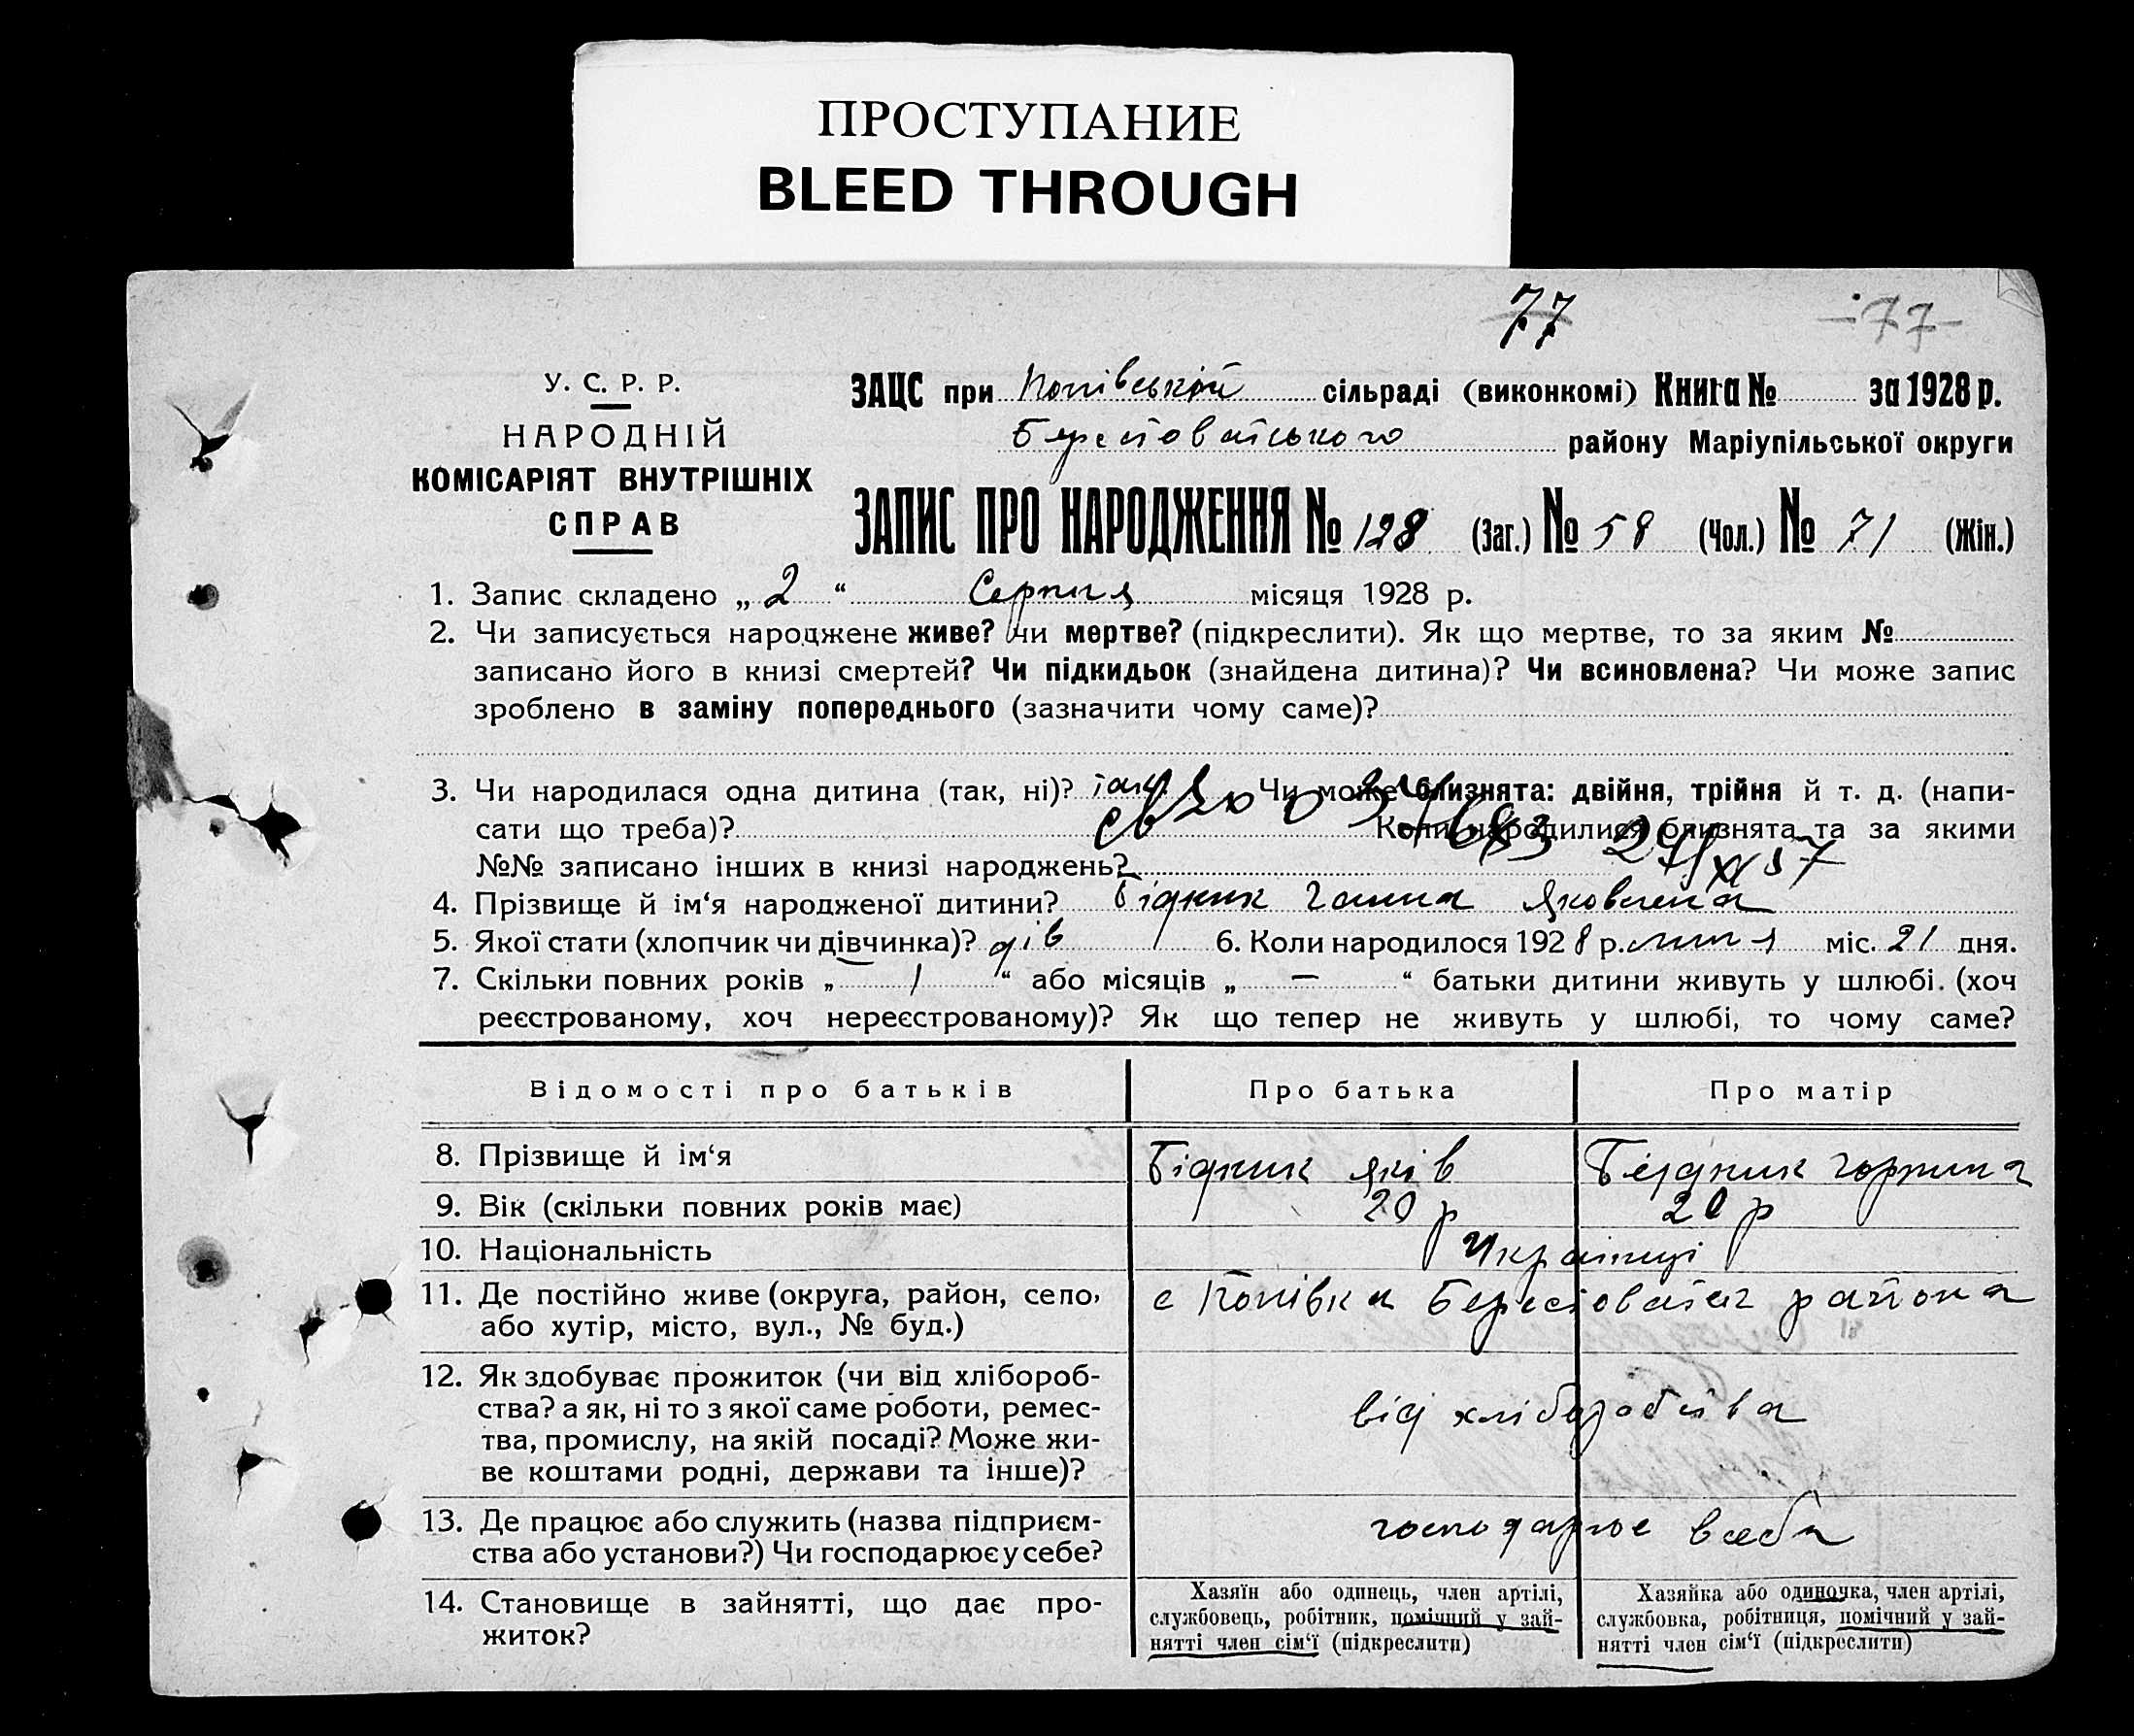 ПРОСТУПАНИЕ
BLEED THROUGH
77 77
У. С. Р. Р.
НАРОДНІЙ
КОМІСАРІЯТ ВНУТРІШНІХ
СПРАВ
ЗАЦС при Попівській сільраді (виконкомі) Книга № за 1928 р.
Берестоватського району Маріупільської округи
ЗАПИС ПРО НАРОДЖЕННЯ № 128 (Заг.) № 58 (Чол.) № 71 (Жін.)
1. Запис складено „ 2 “ Серпня місяця 1928 р.
2. Чи записується народжене живе? чи мертве? (підкреслити). Як що мертве, то за яким №
записано його в книзі смертей? Чи підкидьок (знайдена дитина)? Чи всиновлена? Чи може запис
зроблено в заміну попереднього (зазначити чому саме)?
3. Чи народилася одна дитина (так, ні)? так Чи може близнята: двійня, трійня й т. д. (напи-
сати що треба)? Коли народилися близнята та за якими
№№ записано інших в книзі народжень?
4. Прізвище й ім‘я народженої дитини? Бідник Ганна Яковлена
5. Якої стати (хлопчик чи дівчинка)? дів 6. Коли народилося 1928 р. липня міс. 21 дня.
7. Скільки повних років „ 1 “ або місяців „ — “ батьки дитини живуть у шлюбі. (хоч
реєстрованому, хоч нереєстрованому)? Як що тепер не живуть у шлюбі, то чому саме?
Відомості про батьків Про батька Про матір
8. Прізвище й ім‘я Бідник Яків Бердник Горпина
9. Вік (скільки повних років має) 20 р 20 р
10. Національність Українці
11. Де постійно живе (округа, район, село,
або хутір, місто, вул., № буд.)
с Попівка Берестоватск района
12. Як здобуває прожиток (чи від хлібороб-
ства? а як, ні то з якої саме роботи, ремес-
тва, промислу, на якій посаді? Може жи-
ве коштами родні, держави та інше)?
від хліборобства
13. Де працює або служить (назва підприєм-
ства або установи?) Чи господарює у себе?
господарює в себе
14. Становище в зайнятті, що дає про-
житок?
Хазяїн або одинець, член артілі,
службовець, робітник, помічний у зай-
нятті член сім‘ї (підкреслити)
Хазяйка або одиночка, член артілі,
службовка, робітниця, помічний у зай-
нятті член сім‘ї (підкреслити)